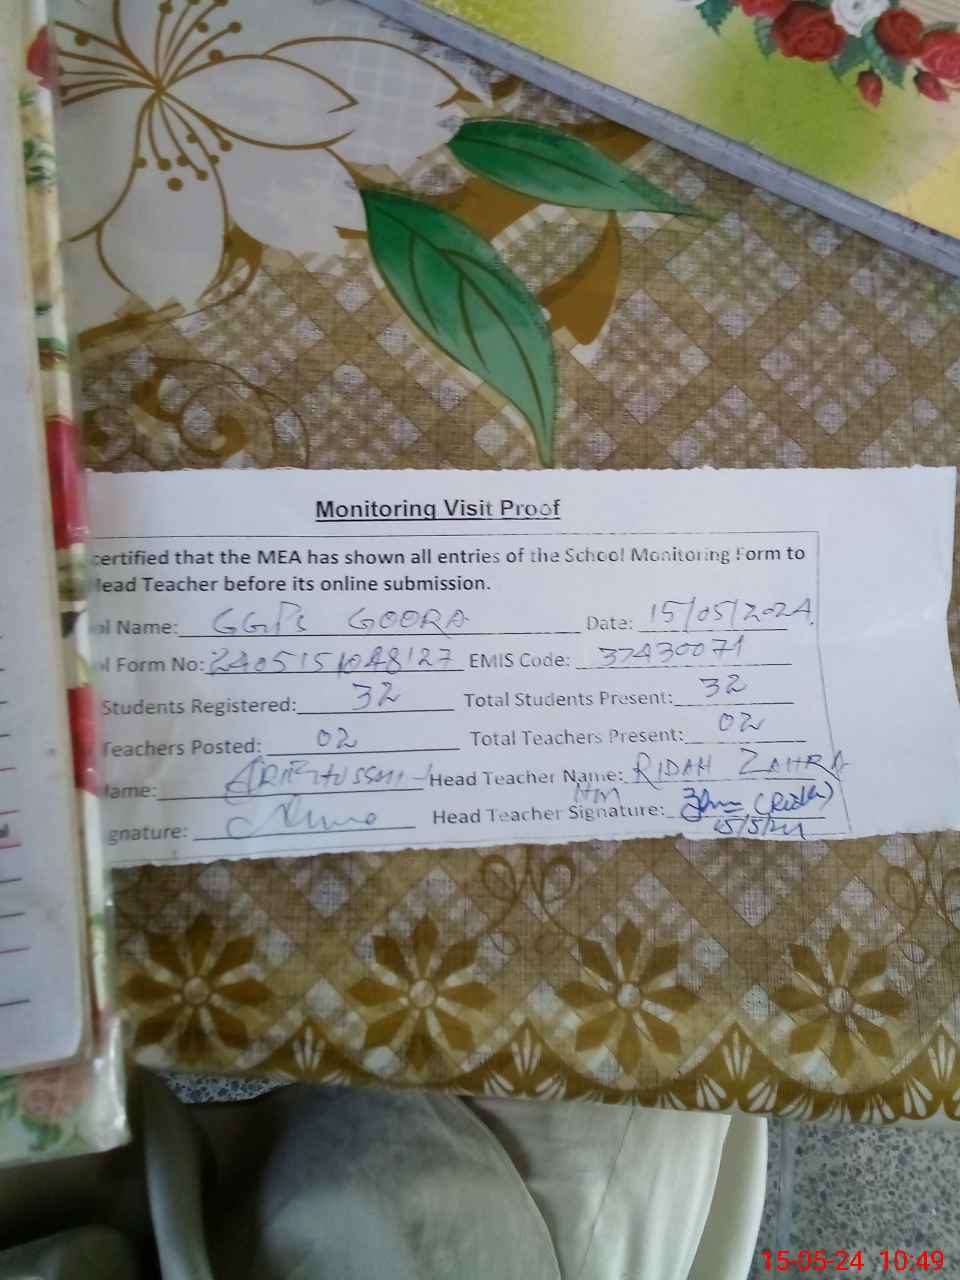 Monitoring Visit Proof
certified that the MEA has shown all entries of the School Monitoring Form to
Head Teacher before its online submission.
ol Name: GGPS GOORA Date: 15/05/2024
ol Form No: EMIS Code: 37430071
Students Registered: 32 Total Students Present: 32
Teachers Posted: 02 Total Teachers Present: 02
Name: Head Teacher Name: RIDAH ZAHRA
HM
gnature: Head Teacher Signature: (Ridah)
15/5/24
15-05-24 10:49